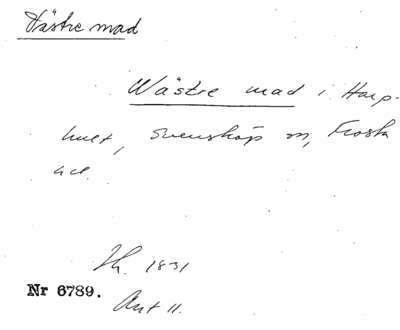 Västre mad
Wästre mad i Harp-
hult, Svensköp sn, Frosta
hd.
Sk. 1831
Nr 6789.
Akt 11.